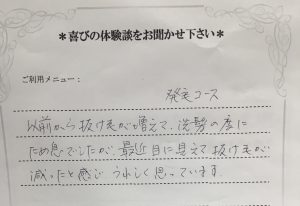 *喜びの体験談をお聞かせ下さい*
ご利用メニュー:
発毛コース
以前から抜け毛が増えて、洗髪の度に
ため息でしたが、最近目に見えて抜け毛が
減ったと感じ うれしく思っています。